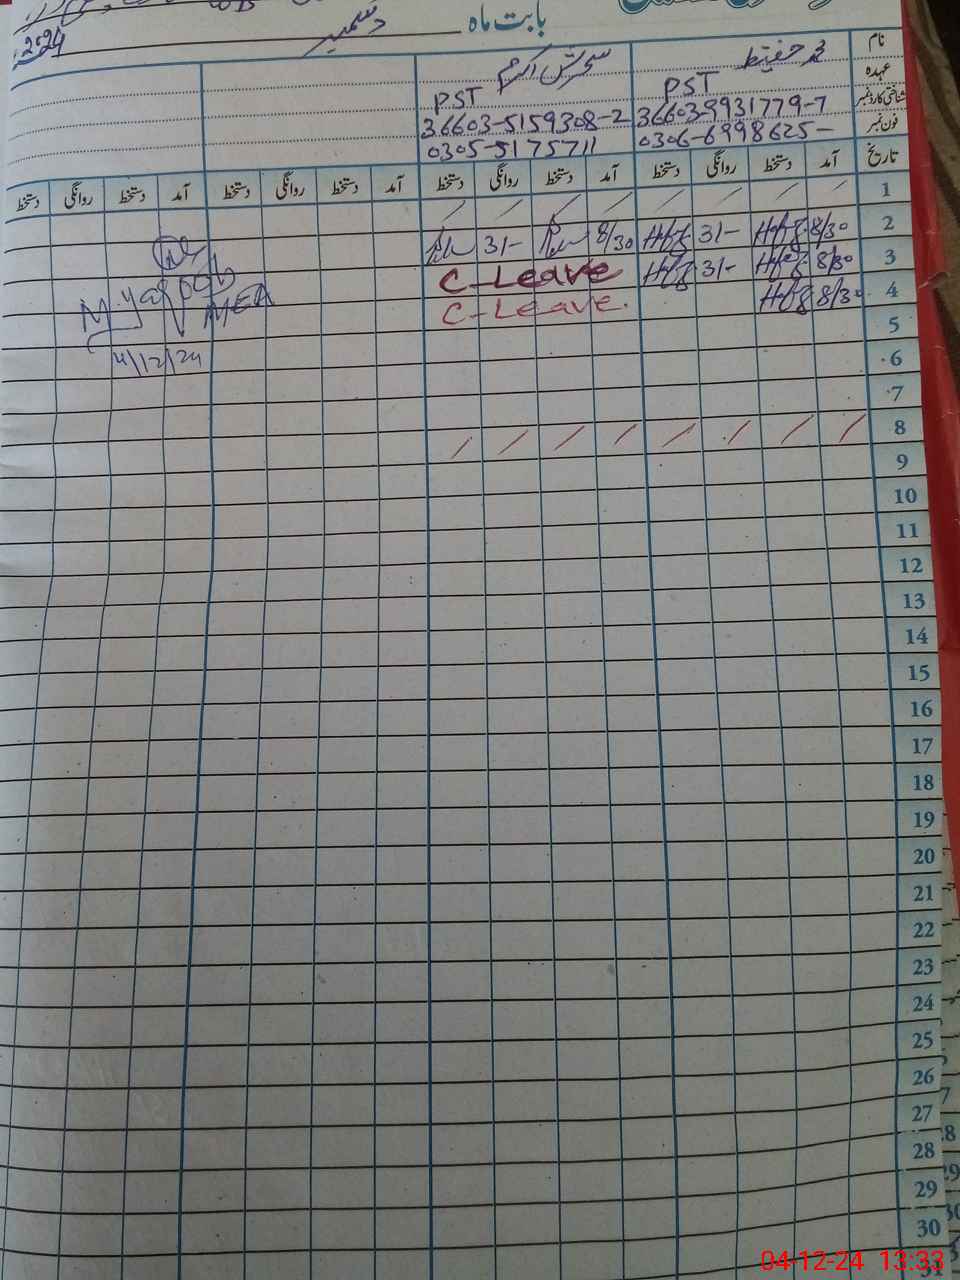 بابت ماہ دسمبر 2024
نام محمد حفیظ سحرش اکرم
عہدہ PST PST
شناختی کارڈ نمبر 36603-9931779-7 36603-5159308-2
فون نمبر 0306-6998625- 0305-5175711
تاریخ آمد دستخط روانگی دستخط آمد دستخط روانگی دستخط آمد دستخط روانگی دستخط آمد دستخط روانگی دستخط
1 / / / / / / / /
2 8/30 Hafz 31- Hafz 8/30 31-
3 8/30 Hafz 31- Hafz C-Leave
4 8/30 Hafz C-Leave.
MEA
5
6
4/12/24
7
8 / / / / / / / /
9
10
11
12
13
14
15
16
17
18
19
20
21
22
23
24
25
26
27
28
29
30
31
04-12-24 13:33